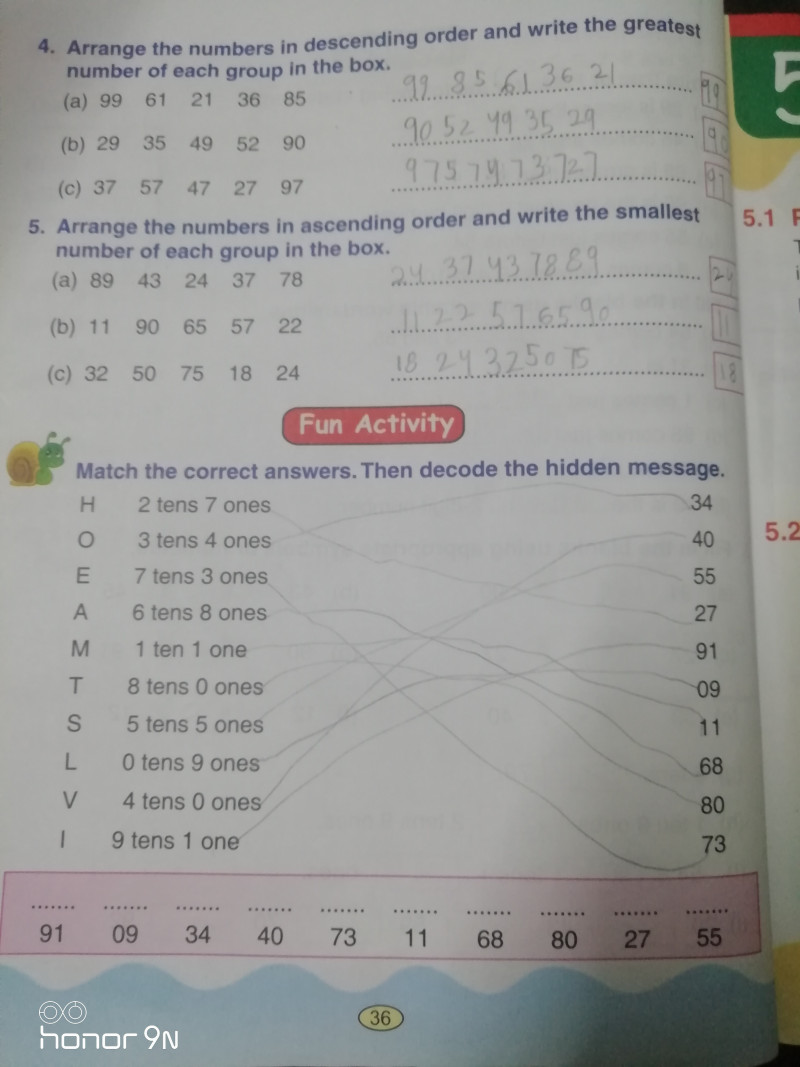 4. Arrange the numbers in descending order and write the greatest
number of each group in the box.
(a) 99 61 21 36 85 99 85 61 36 21 99
(b) 29 35 49 52 90 90 52 49 35 29 90
(c) 37 57 47 27 97 97 57 47 37 27 97
5. Arrange the numbers in ascending order and write the smallest
number of each group in the box.
(a) 89 43 24 37 78 24 37 43 78 89 24
(b) 11 90 65 57 22 11 22 57 65 90 11
(c) 32 50 75 18 24 18 24 32 50 75 18
Fun Activity
Match the correct answers. Then decode the hidden message.
H 2 tens 7 ones 34
O 3 tens 4 ones 40
E 7 tens 3 ones 55
A 6 tens 8 ones 27
M 1 ten 1 one 91
T 8 tens 0 ones 09
S 5 tens 5 ones 11
L 0 tens 9 ones 68
V 4 tens 0 ones 80
I 9 tens 1 one 73
91 09 34 40 73 11 68 80 27 55
36
5
5.1
5.2
honor 9N